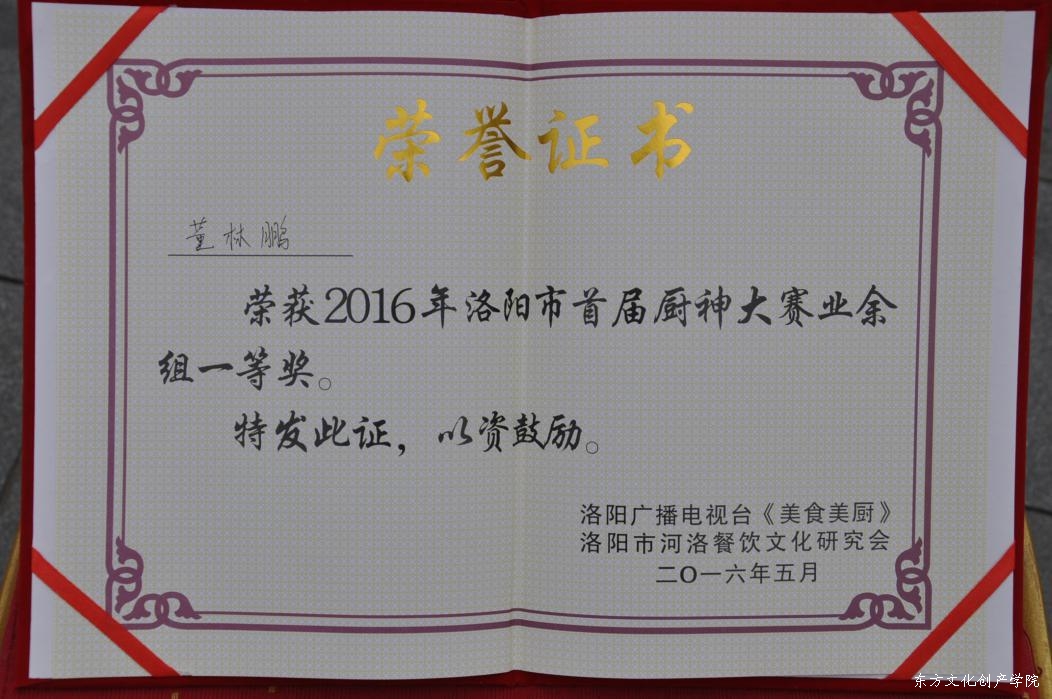 荣誉证书
董林鹏
荣获2016年洛阳市首届厨神大赛业余
组一等奖。
特发此证，以资鼓励。
洛阳广播电视台《美食美厨》
洛阳市河洛餐饮文化研究会
二〇一六年五月
东方文化创产学院